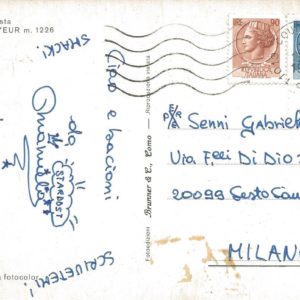 osta
YEUR m. 1226
SMACK!
Ciao e bacioni
da
Emanuela
STARDUST
SCRIVETEMI!
fotocolor
Fotoedizioni Brunner & C., Como
Riproduzione vietata
90
ITALIANA
PER/E
Senni Gabriel
Via F.lli Di Dio
20099 Sesto
MILAN